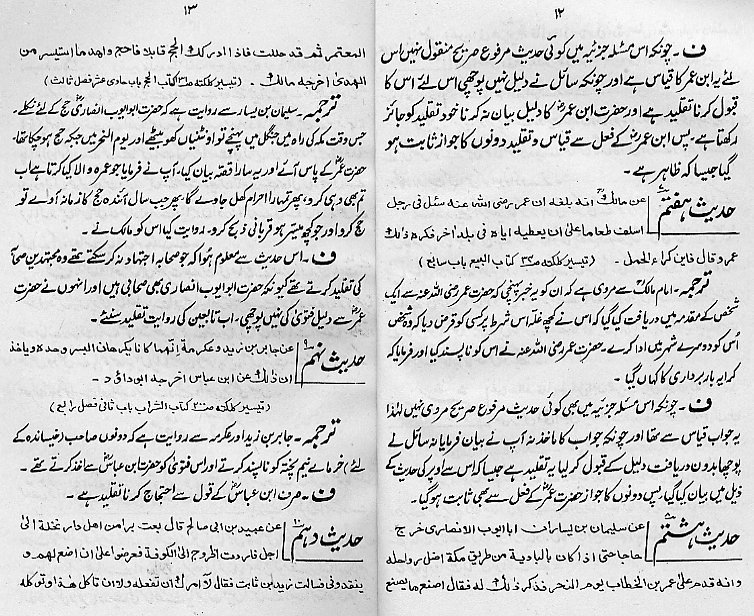 ۱۲
ف ۔ چونکہ اس مسئلہ جزئیہ میں کوئی حدیث مرفوع صریح منقول نہیں اس
لئے یہ ابن عمر کا قیاس ہے اور چونکہ سائل نے دلیل نہیں پوچھی اس لئے اس کا
قبول کرنا تقلید ہے اور حضرت ابن عمرؓ کا دلیل بیان نہ کرنا خود تقلید کو جائز
رکھتا ہے ۔ پس ابن عمرؓ کے فعل سے قیاس و تقلید دونوں کا جواز ثابت ہو
گیا جیسا کہ ظاہر ہے ۔
حدیث ہفتم عن مالکؒ انہ بلغہ ان عمر رضی اللہ عنہ سئل فی رجل
اسلف طعاما علی ان یعطیہ ایاہ فی بلد اخر فکرہ ذلک
عمر و قال فاین کراء الحمل ۔ (تیسیر کلکتہ ص۳۳ کتاب البیع باب سابع)
ترجمہ ۔ امام مالکؒ سے مروی ہے کہ ان کو یہ خبر پہنچی کہ حضرت عمر رضی اللہ عنہ سے ایک
شخص کے مقدمہ میں دریافت کیا گیا کہ اس نے کچھ غلہ اس شرط پر کسی کو قرض دیا کہ وہ شخص
اُس کو دوسرے شہر میں ادا کرے ۔ حضرت عمر رضی اللہ عنہ نے اس کو ناپسند کیا اور فرمایا کہ
کرایہ بار برداری کا کہاں گیا ۔
ف ۔ چونکہ اس مسئلہ جزئیہ میں بھی کوئی حدیث مرفوع صریح مروی نہیں لہٰذا
یہ جواب قیاس سے تھا اور چونکہ جواب کا ماخذ نہ آپ نے بیان فرمایا نہ سائل نے
پوچھا بدون دریافت دلیل کے قبول کر لیا یہ تقلید ہے جیسا کہ اس سے اوپر کی حدیث کے
ذیل میں بیان کیا گیا پس دونوں کا جواز حضرت عمرؓ کے فعل سے بھی ثابت ہو گیا ۔
حدیث ہشتم عن سلیمان بن یسار ان ابا ایوب الانصاری خرج
حاجا حتی اذا کان بالبادیۃ من طریق مکۃ اضل رواحلہ
و انہ قدم علی عمر بن الخطاب یوم النحر فذکر ذلک لہ فقال اصنع ما یصنع
۱۳
المعتمر ثم قد حللت فاذا ادرکک الحج قابلا فاحجج و اھد ما استیسر من
الھدی اخرجہ مالک ۔ (تیسیر کلکتہ کتاب الحج باب حادی عشر فصل ثالث)
ترجمہ ۔ سلیمان بن یسار سے روایت ہے کہ حضرت ابو ایوب انصاریؓ حج کے لئے نکلے ۔
جس وقت مکہ کی راہ میں جنگل میں پہنچے تو اونٹنیاں کھو بیٹھے اور یوم النحر میں جبکہ حج ہو چکا تھا ،
حضرت عمرؓ کے پاس آئے اور یہ سارا قصہ بیان کیا ۔ آپ نے فرمایا جو عمرہ والا کیا کرتا ہے اب
تم بھی وہی کرو ، پھر تمہارا احرام کھل جاوے گا ۔ پھر جب سال آئندہ حج کا زمانہ آوے تو
حج کرو اور جو کچھ میسر ہو قربانی ذبح کرو ۔ روایت کیا اس کو مالک نے ۔
ف ۔ اس حدیث سے معلوم ہوا کہ جو صحابہ اجتہاد نہ کر سکتے تھے وہ مجتہدین صحابہ
کی تقلید کرتے تھے کیونکہ حضرت ابو ایوب انصاری بھی صحابی ہیں اور انہوں نے حضرت
عمرؓ سے دلیل فتویٰ کی نہیں پوچھی ، اب تابعین کی روایت تقلید سنئے ۔
حدیث نہم عن جابر بن زید و عکرمۃ انھما کانا یکرھان البسر وحدہ و یاخذ
ان ذلک عن ابن عباس اخرجہ ابی داؤد ۔
(تیسیر کلکتہ کتاب الشراب باب ثانی فصل رابع)
ترجمہ ۔ جابر بن زید اور عکرمہ سے روایت ہے کہ دونوں صاحب (خیساندہ کے
لئے) خرمائے نیم پختہ کو ناپسند کرتے اور اس فتویٰ کو حضرت ابن عباسؓ سے اخذ کرتے تھے ۔
ف ۔ صرف ابن عباسؓ کے قول سے احتجاج کرنا تقلید ہے ۔
حدیث دہم عن عبید بن ابی صالح قال بعت برا من اھل دار نخلۃ الی
اجل فاردت الخروج الی الکوفۃ فعرضوا علی ان اضع لھم و
ینقدونی فسالت زید بن ثابت فقال لا امرک ان تفعلہ ولا ان تاکل ھذا و توکلہ